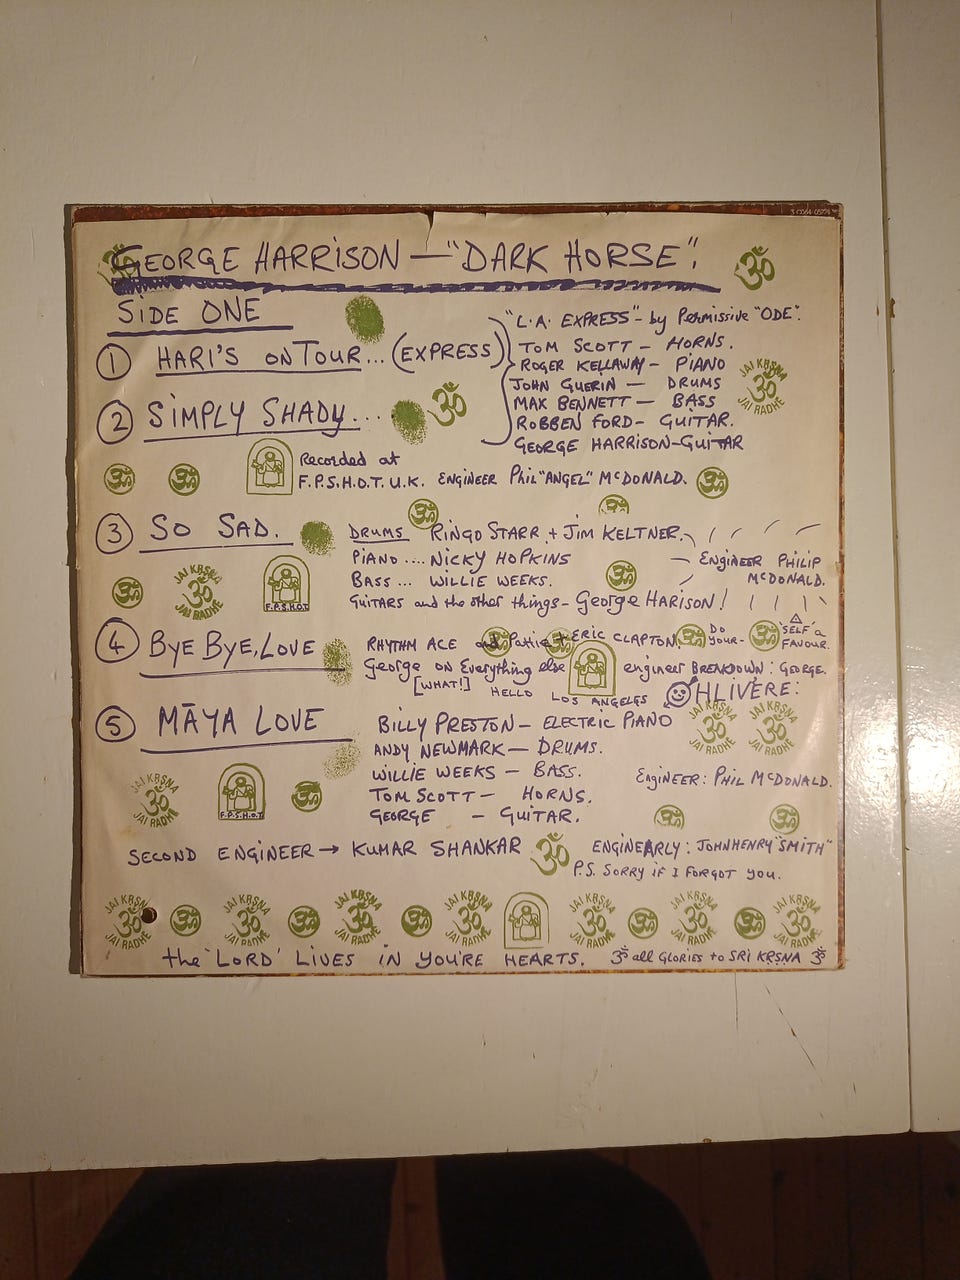 GEORGE HARRISON — "DARK HORSE".
SIDE ONE
① HARI'S ON TOUR... (EXPRESS)
"L.A. EXPRESS" - by Permissive "ODE".
TOM SCOTT — HORNS.
ROGER KELLAWAY - PIANO
JOHN GUERIN — DRUMS
MAX BENNETT — BASS
ROBBEN FORD - GUITAR.
GEORGE HARRISON - GUITAR
② SIMPLY SHADY...
Recorded at
F.P.S.H.O.T. U.K. ENGINEER Phil "ANGEL" McDONALD.
③ SO SAD.
DRUMS RINGO STARR + JIM KELTNER.
PIANO .... NICKY HOPKINS
BASS ... WILLIE WEEKS.
GUITARS and the other things - George HARISON!
ENGINEER PHILIP
McDONALD.
JAI KRSNA
ॐ
JAI RADHE
F.P.S.H.O.T.
④ BYE BYE, LOVE
RHYTHM ACE and Pattie + ERIC CLAPTON.
DO YOUR- 'SELF' a FAVOUR.
George ON Everything else
[WHAT!]
HELLO LOS ANGELES
engineer BREAKDOWN: GEORGE.
OHLIVERE:
⑤ MĀYA LOVE
BILLY PRESTON — ELECTRIC PIANO
ANDY NEWMARK — DRUMS.
WILLIE WEEKS — BASS.
TOM SCOTT — HORNS.
GEORGE — GUITAR.
Engineer: PHIL McDONALD.
JAI KRSNA
ॐ
JAI RADHE
F.P.S.H.O.T.
SECOND ENGINEER → KUMAR SHANKAR ॐ ENGINEARLY: JOHN HENRY "SMITH"
P.S. SORRY IF I FORGOT YOU.
JAI KRSNA ॐ JAI RADHE
the 'LORD' LIVES IN YOU'RE HEARTS. ॐ all GLORIES to SRI KRSNA ॐ